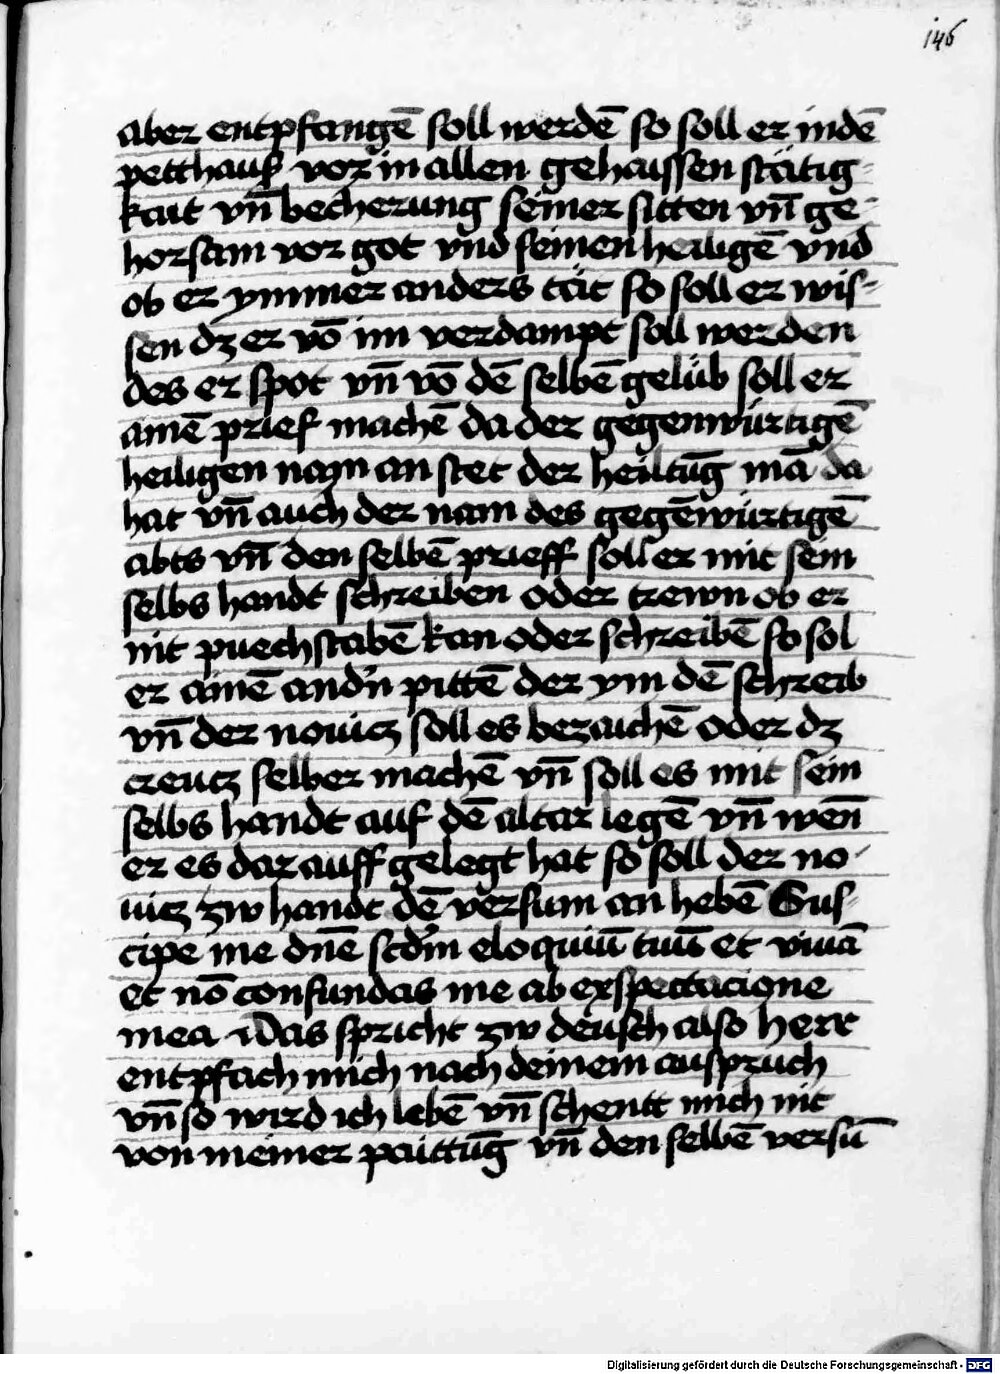 146
aber entpfangē soll werdē so soll er indē
petthauß vor in allen gehaissen stätig-
kait vn̄ becherung seiner sitten vn̄ ge-
horsam vor got vnd seinen heiligē vnd
ob er ymmer anders tät so soll er wis-
sen dz er vō im verdampt soll werden
des er spot vn̄ vō dē selbē gelüb soll er
ainē prief machē da der gegenwürtigē
heiligen nam an stet der heiltūg mā da
hat vn̄ auch der nam des gegēwürtigē
abts vn̄ den selbē prieff soll er mit sein
selbs handt schreiben oder trewn ob er
nit puechstabē kan oder schreibē so sol
er ainē and'n pittē der ym dē schreib
vn̄ der nouitz soll es bezaichē oder dz
creutz selber machē vn̄ soll es mit sein
selbs handt auf dē altar legē vn̄ wen̄
er es dar auff gelegt hat so soll der no-
uitz zw handt dē versum an hebē Sus-
cipe me dn̄e scd'm eloquiū tuū et viuā
et nō confundas me ab exspectacione
mea Das spricht zw deüsch also herr
entpfach mich nach deinem auspruch
vn̄ so wird ich lebē vn̄ schentt mich nit
von meiner paittūg vn̄ den selbē versū
Digitalisierung gefördert durch die Deutsche Forschungsgemeinschaft - DFG